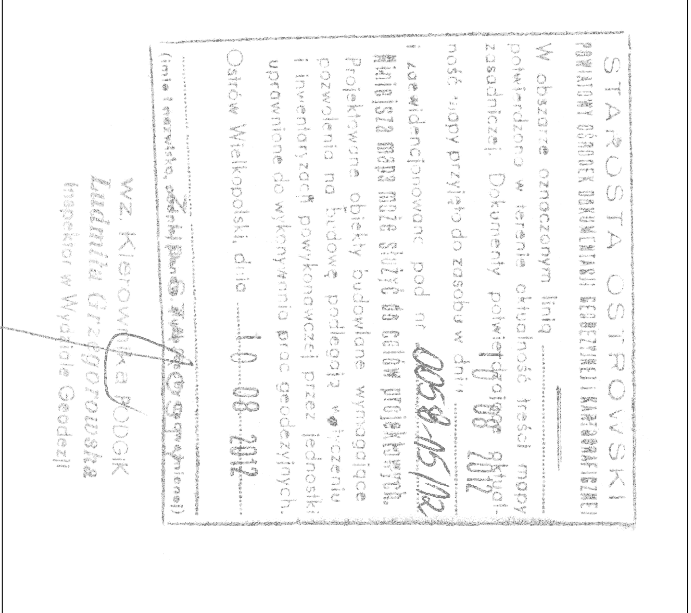 STAROSTA OSTROWSKI
POWIATOWY OŚRODEK DOKUMENTACJI GEODEZYJNEJ I KARTOGRAFICZNEJ
W obszarze oznaczonym linią
potwierdzono w terenie aktualność treści mapy
zasadniczej. Dokumenty potwierdzające aktual-
10 08 2012
ność mapy przyjęto do zasobu w dniu
i zaewidencjonowano pod nr
Niniejsza mapa może służyć do celów projektowych.
Projektowane obiekty budowlane wymagające
pozwolenia na budowę podlegają wytyczeniu
i inwentaryzacji powykonawczej przez jednostki
uprawnione do wykonywania prac geodezyjnych.
Ostrów Wielkopolski, dnia 10 08 2012
(imię i nazwisko,
wz. Kierownika PODGK
Ludmiła Grzegorowska
Inspektor w Wydziale Geodezji